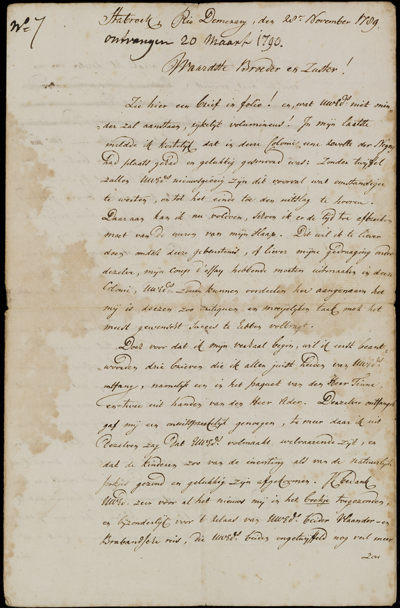 No 7
Stabroek, Rio Demerary, den 28e November 1789.
ontvangen 20 Maart 1790.
Waardste Broeder en Zuster!
Zie hier een brief in folio! en, wat UWEd. niet min-
der zal aanstaan, tijdelijk volumineus! In mijn laatste
melde ik kortelijk, dat in deeze Colonie eene revolte der Neger
had plaats gehad en gelukkig gesmoord was: Zonder twyffel
zullen UWEd. nieuwsgierig zijn die vooraf wat omstandiger
te weeten, en tot het einde toe den uitslag te hooren.
Daaraan kan ik nu voldoen, schoon ik er de tijd toe afbreken
moet van de uuren van mijn slaap. Dit wil ik te liever
doen omdat deze gebeurtenis, of liever mijne gedraging onder
dezelve, mijn Coup d'essay hebbende moeten uitmaaken in deeze
Colonie, UWEd. zoude kunnen oordeelen hoe aangenaam het
mij is deezen zoo lastigen en moeijelijken taak met het
meest gewenscht succes te hebben voltrokt.
Doch voor dat ik mijn verhaal begin, wil ik eerst beant-
woorden drie brieven die ik allen zints heden van UWEd.
ontfang, namelijk een in het paquet van den Heer Tinne
en twee uit handen van den Heer Alder. Dezelve ontfangst
gaf mij een onuitspreekelijk genoegen, te meer daar ik uit
Dezelven zag Dat UWEd. volmaakt welvaarende zijt, en
dat de kinderen zoo van de inenting als van de natuurlyke
pokjes gezond en gelukkig zijn afgekomen. Ik bedank
UWEd. zeer voor al het nieuws mij in het boekje toegezonden,
en bijzonderlijk voor 't relaas van UWEd. beider Vlaander- en
Brabandsche reis, die UWEd. beiden ongetwyffeld nog veel meer
zou